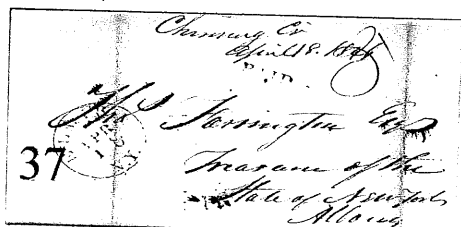 Chemung Co
April 18. 1846
Farrington Esq
37
Treasurer of the
State of New York
Albany